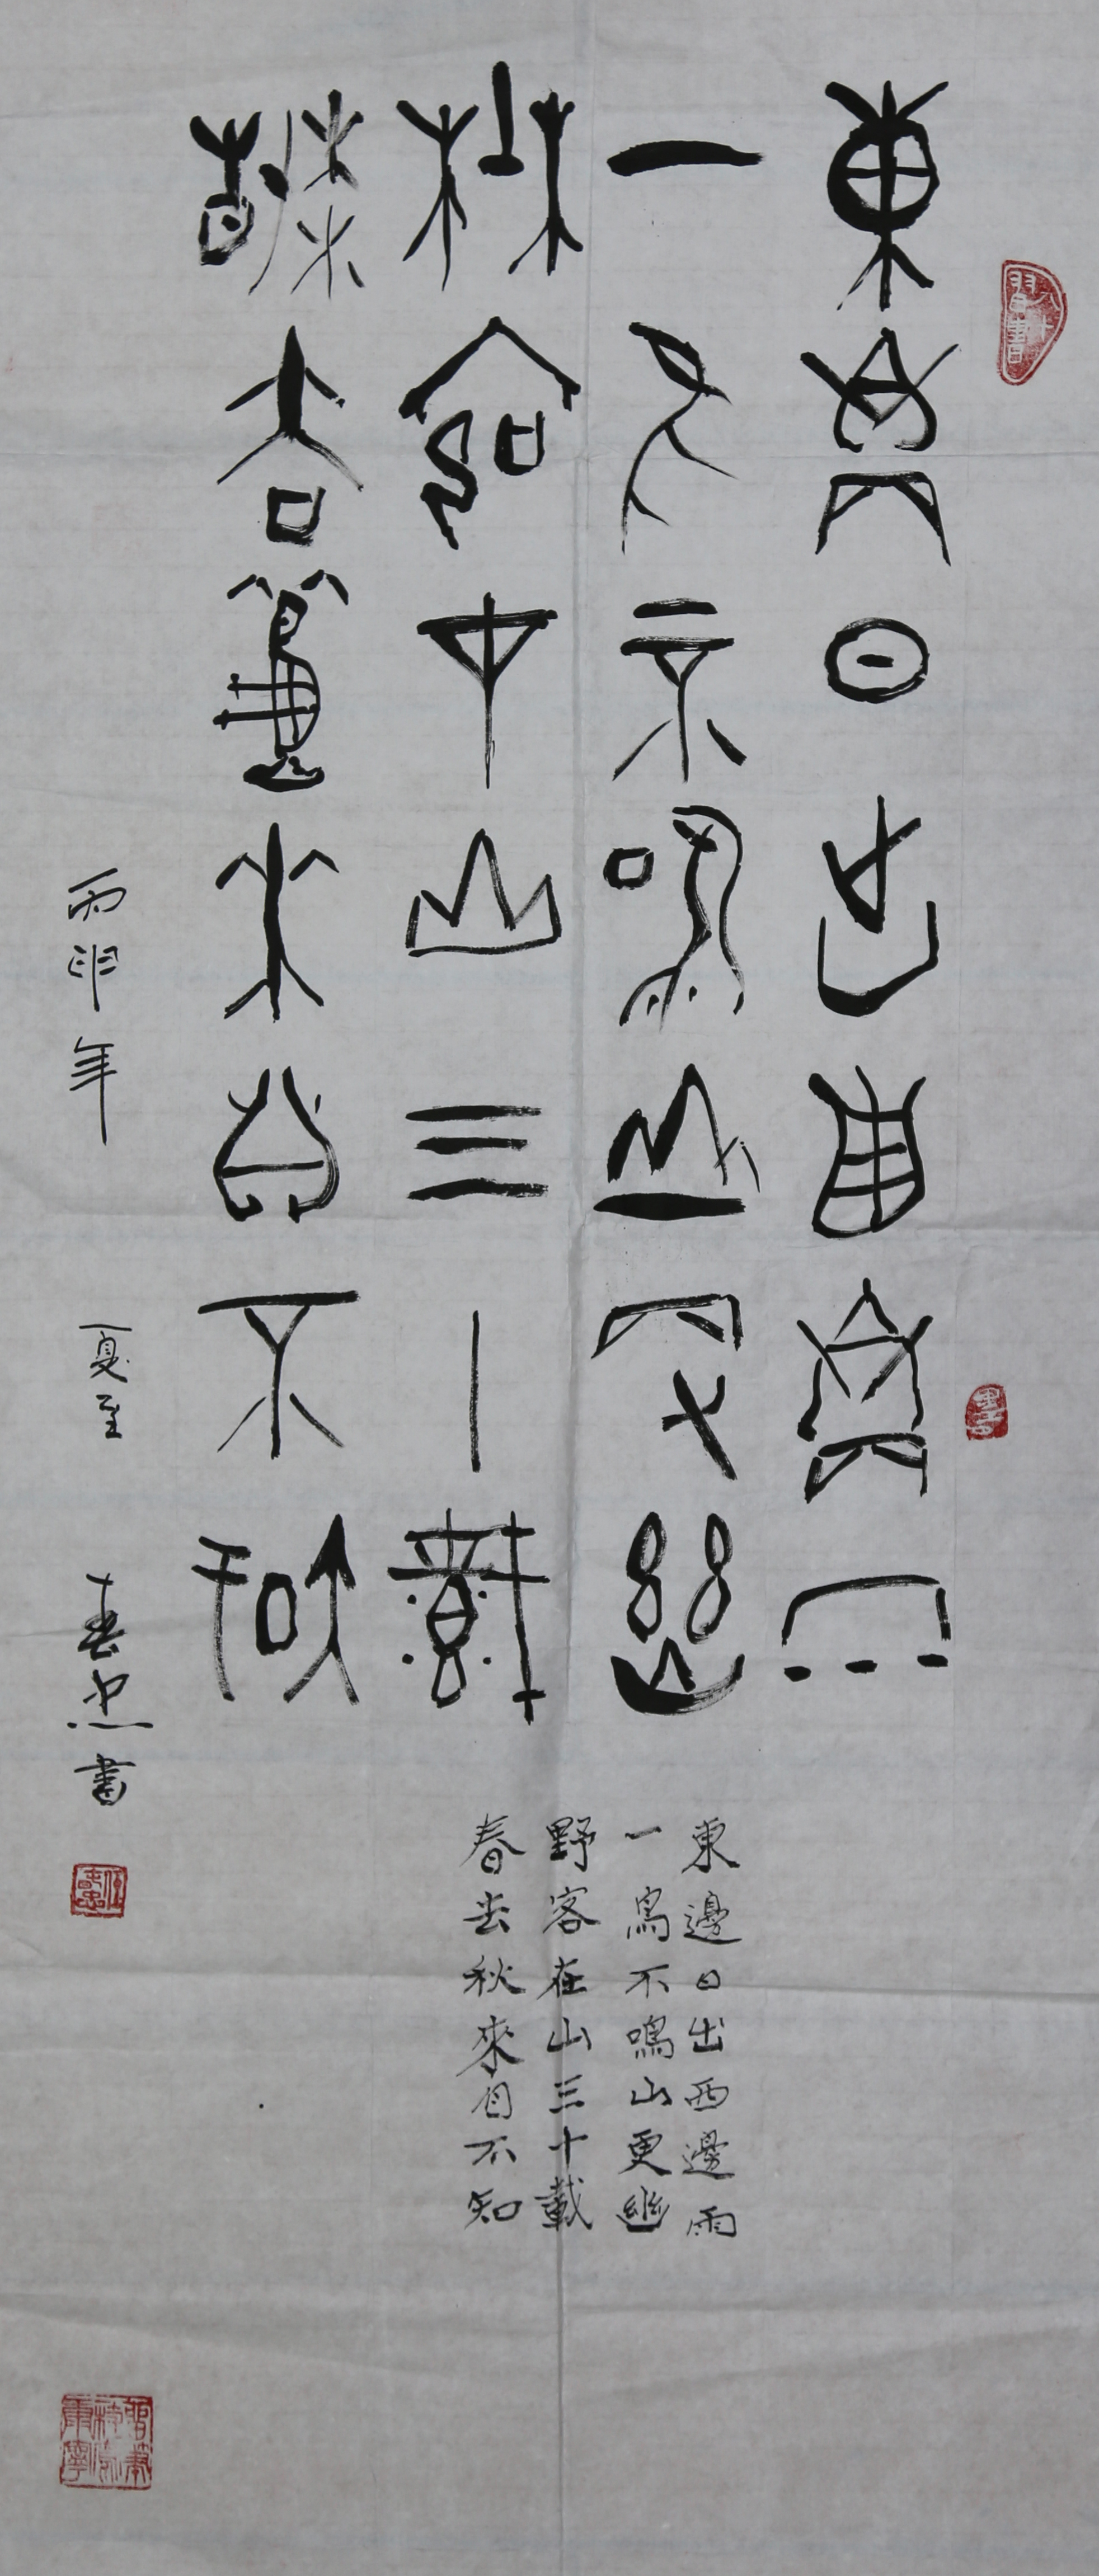 東邊日出西邊雨
一鳥不鳴山更幽
野客在山三十載
春去秋來自不知
丙申年 夏至 春忠書
東邊日出西邊雨
一鳥不鳴山更幽
野客在山三十載
春去秋來自不知